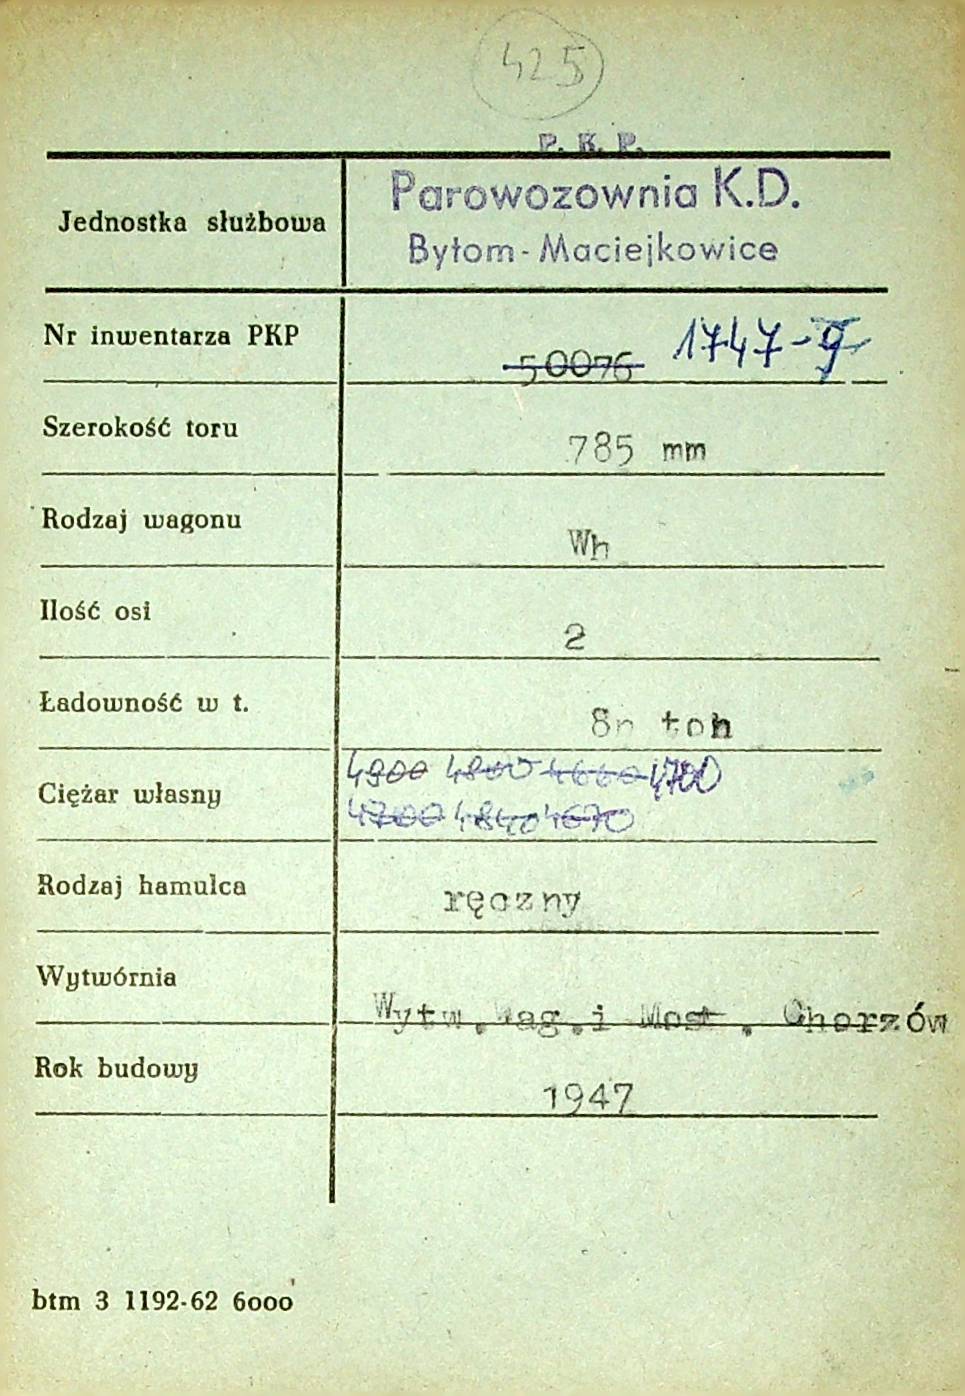 425
P. K. P.
Jednostka służbowa Parowozownia K.D.
Bytom-Maciejkowice
Nr inwentarza PKP 50076 1747-9
Szerokość toru 785 mm
Rodzaj wagonu Wh
Ilość osi 2
Ładowność w t. 8n ton
Ciężar własny 4900 4800 4660 4700
4700 4840 4670
Rodzaj hamulca ręczny
Wytwórnia Wytw. Wag. i Most. Chorzów
Rok budowy 1947
btm 3 1192-62 6000